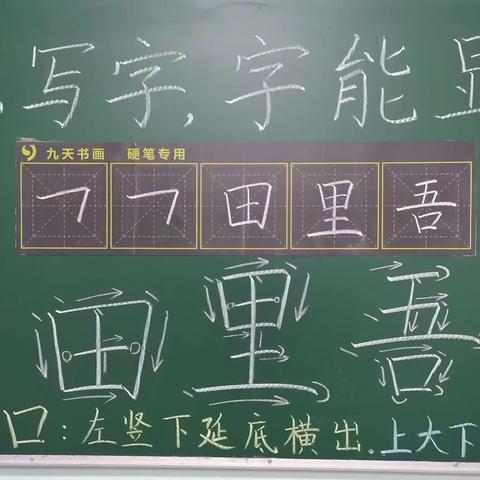 写字,字能
九天书画 硬笔专用
𠃍 𠃍 田 里 吾
田 里 吾
口:左竖下延底横出.上大下